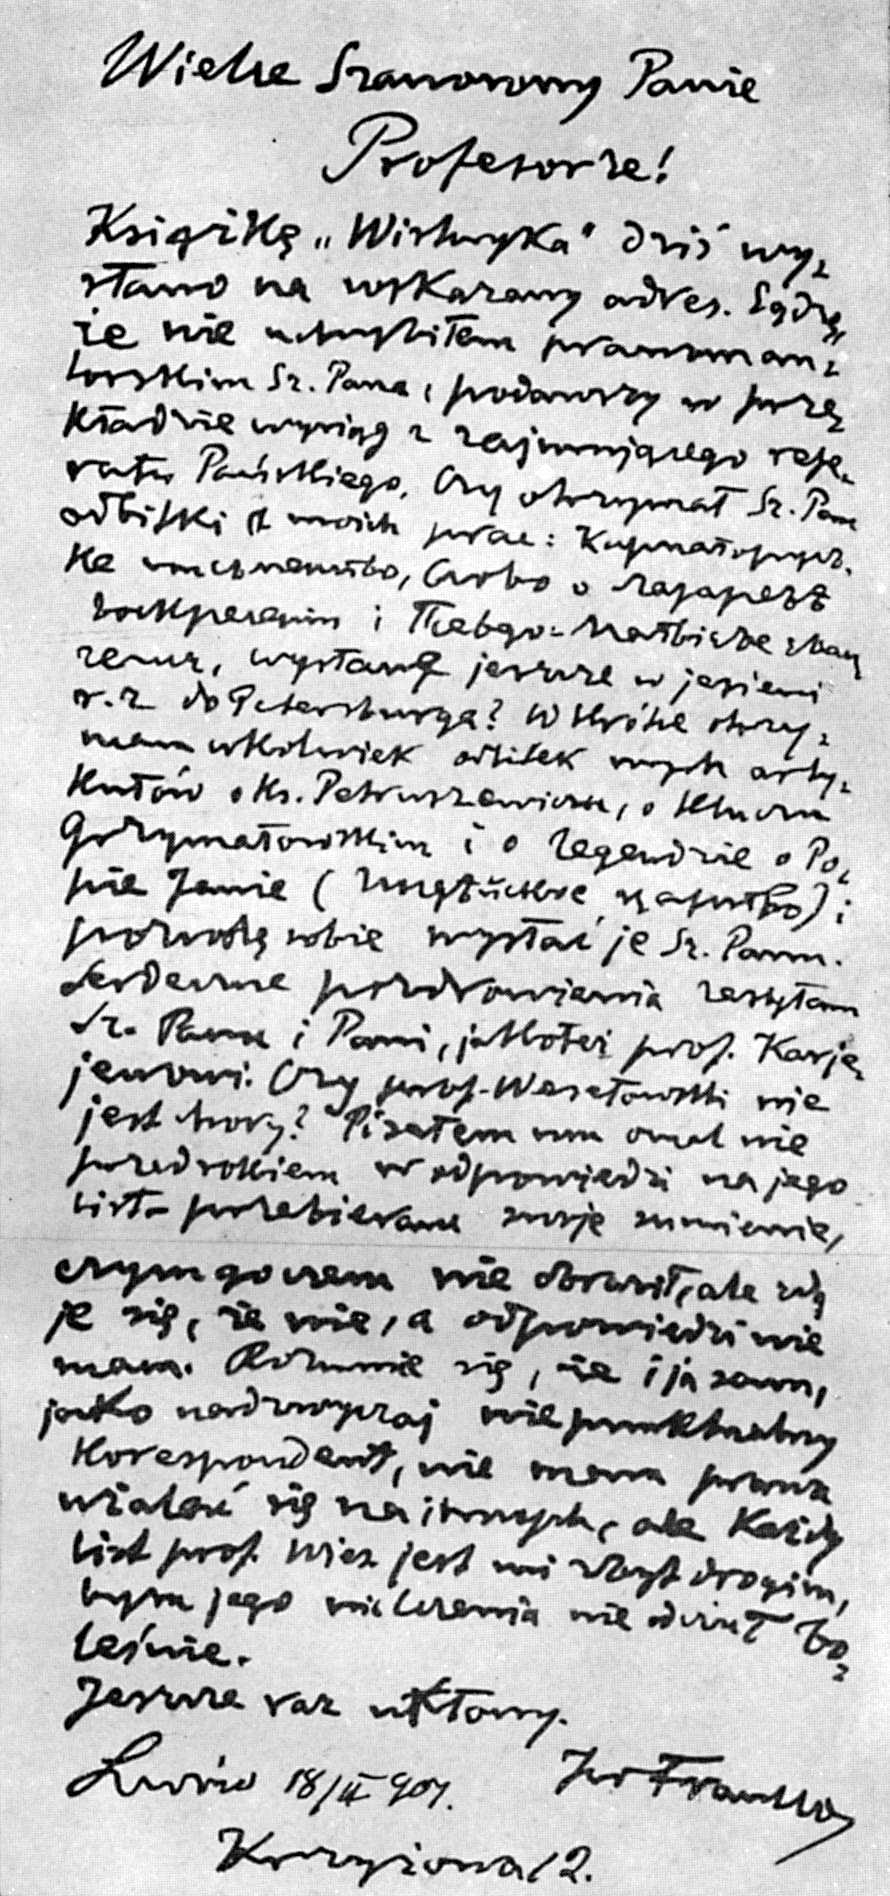 Wielce Szanowny Panie
Profesorze!
Książkę „Wisłwyka" dziś wy-
słano na wskazany adres. Sądzę,
że nie uchybiłem prawom au-
torskim Sz. Pana, podawszy w prze-
kładzie wyciąg z zajmującego refe-
ratu Pańskiego. Czy otrzymał Sz. Pan
odbitki moich prac:
ке Слово о
i
wysłane jeszcze w jesieni
r. z. do Petersburga? Wkrótce otrzy-
mam odbitek mych arty-
kułów o Ks. Petruszewiczu, o kluczu
Grzymałowskim i o legendzie o Po-
pie Janie ( ) i
pozwolę sobie wysłać je Sz. Panu.
Serdeczne pozdrowienia zasyłam
Sz. Panu i Pani, jakoteż prof. Karje-
jewowi. Czy prof. Wesełowski nie
jest chory? Pisałem mu omal nie
przed rokiem w odpowiedzi na jego
list – przebieram swoje sumienie,
czym go czem nie obraził, ale zda-
je się, że nie, a odpowiedzi nie
mam. Rozumie się, że i ja sam,
jako nadzwyczaj niepunktualny
korespondent, nie mam prawa
użalać się na innych, ale każdy
list prof. Wes. jest mi zbyt drogim,
bym jego milczenia nie odczuł bo-
leśnie.
Jeszcze raz ukłony.
Iw Franko
Lwów 18/II 901.
Krzyżowa 12.